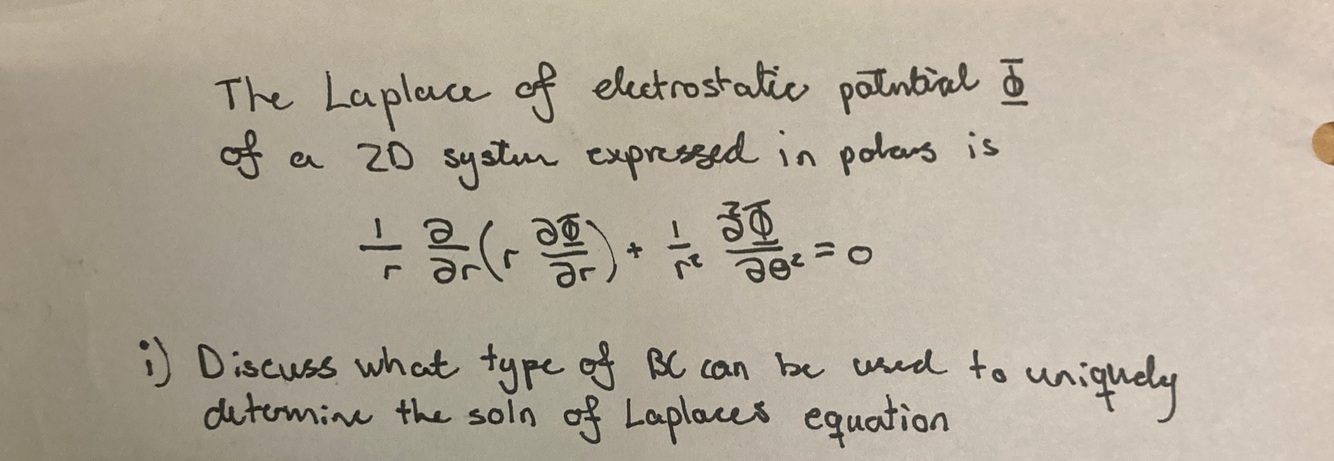 The Laplace of electrostatic potential Φ
of a 2D system expressed in polars is
1/r ∂/∂r (r ∂Φ/∂r) + 1/r² ∂²Φ/∂θ² = 0
i) Discuss what type of BC can be used to uniquely
determine the soln of Laplaces equation